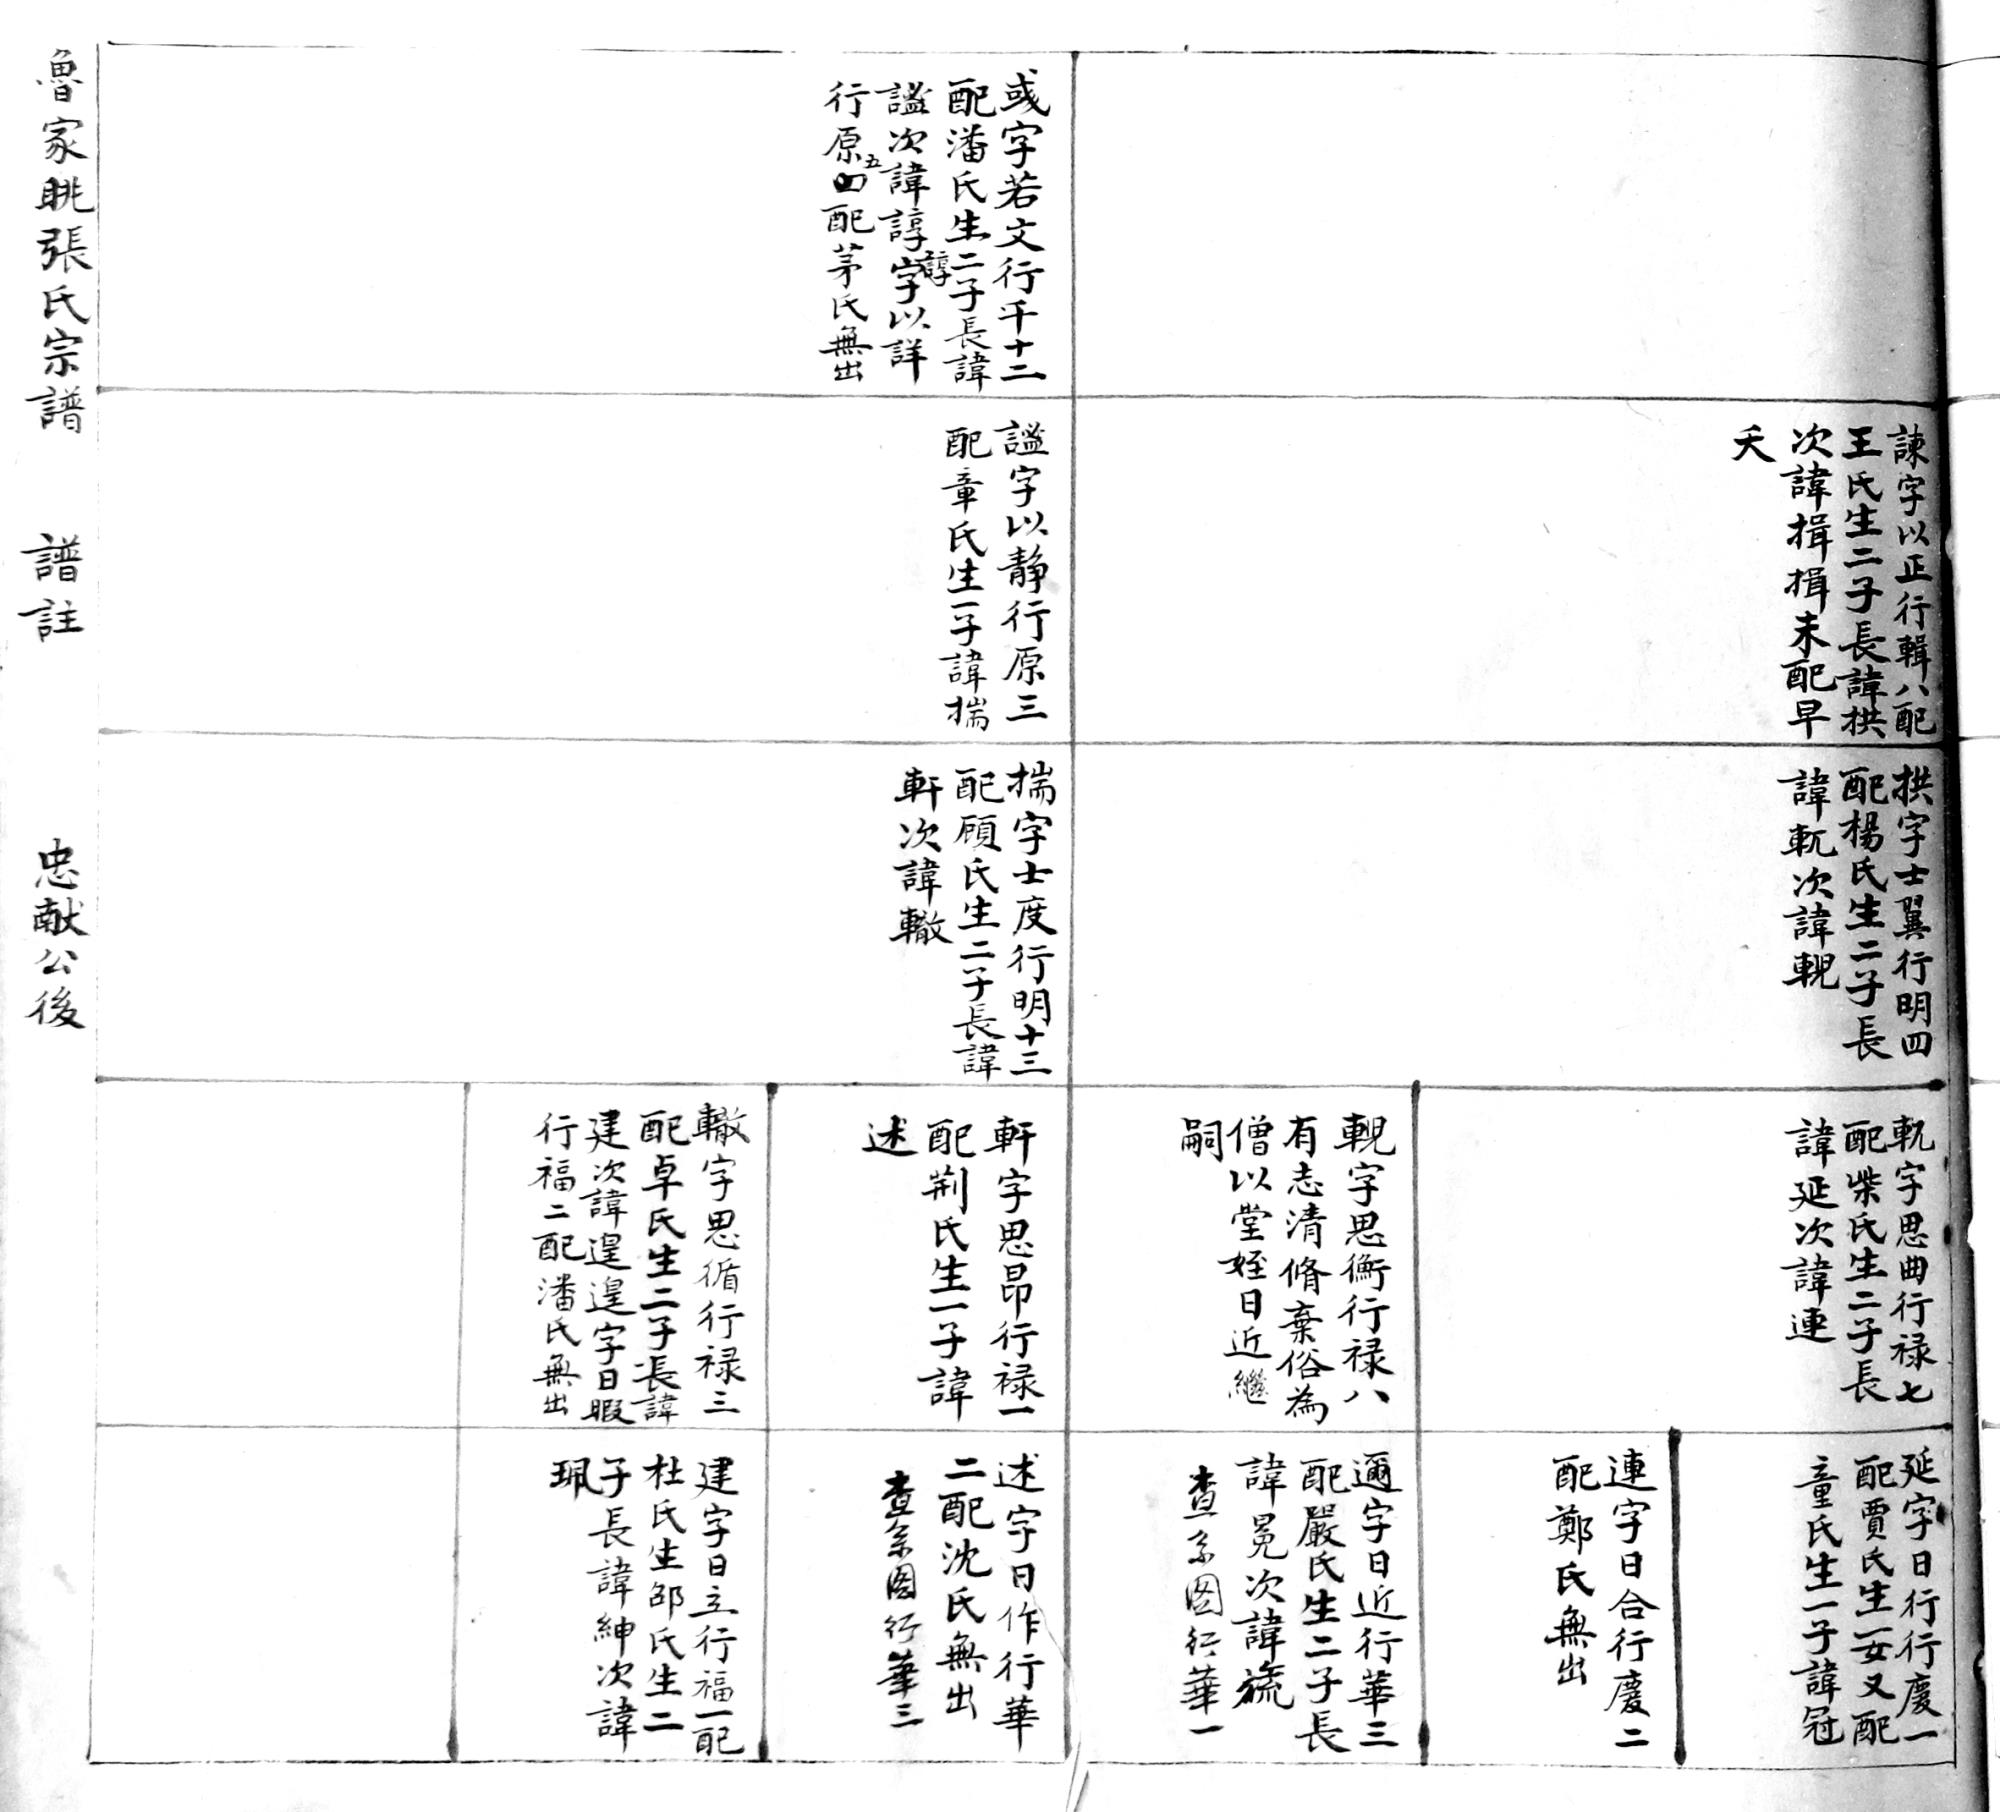 諫字以正行輯八配
王氏生二子長諱拱
次諱揖揖未配早
夭
拱字士翼行明四
配楊氏生二子長
諱軏次諱輗
軏字思曲行禄七
配柴氏生二子長
諱延次諱連
輗字思衡行禄八
有志清脩棄俗為
僧以堂姪日近繼
嗣
延字日行行慶一
配賈氏生一女又配
童氏生一子諱冠
連字日合行慶二
配鄭氏無出
邇字日近行華三
配嚴氏生二子長
諱冕次諱旒
查系图行華一
彧字若文行千十二
配潘氏生二子長諱
謐次諱諄諄字以詳
行原五配茅氏無出
謐字以静行原三
配章氏生一子諱揣
揣字士度行明十三
配顾氏生二子長諱
軒次諱轍
軒字思昂行禄一
配荆氏生一子諱
述
轍字思循行禄三
配卓氏生二子長諱
建次諱遑遑字日暇
行福二配潘氏無出
述字日作行華
二配沈氏無出
查系图行華三
建字日立行福一配
杜氏生邵氏生二
子長諱紳次諱
珮
魯家眺張氏宗譜
譜註
忠献公後